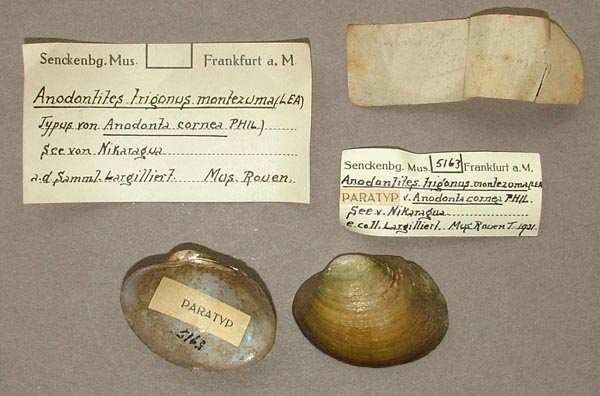 Senckenbg. Mus. Frankfurt a. M.
Anodontites trigonus montezuma (LEA)
Typus von Anodonta cornea PHIL.)
See von Nikaragua
a.d. Samml. Largilliert. Mus. Rouen.
Senckenbg. Mus. 5163 Frankfurt a. M.
Anodontites trigonus montezuma (LEA
PARATYP v. Anodonta cornea PHIL.
See v. Nikaragua
e. coll. Largilliert. Mus. Rouen T. 1931.
PARATYP
5163